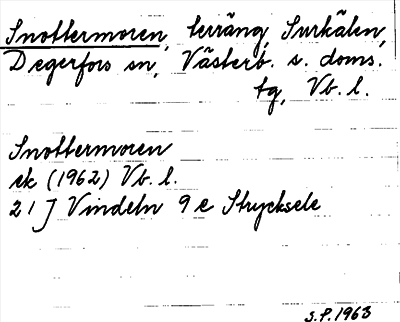 Snottermoren, terräng, Surkälen,
Degerfors sn, Västerb. s. doms.
tg, Vb. l.
Snottermoren
ek (1962) Vb. l.
21 J Vindeln 9 e Strycksele
S.P. 1963